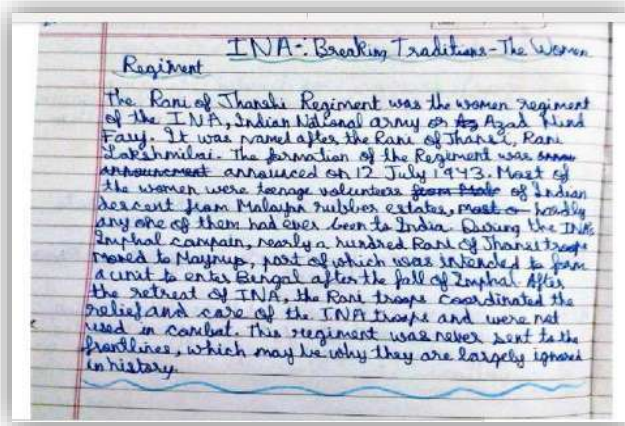 INA-: Breaking Traditions-The Women
Regiment
The Rani of Jhanshi Regiment was the women regiment
of the INA, Indian National army or Azad Hind
Fauj. It was named after the Rani of Jhansi, Rani
Lakshmibai. The formation of the Regiment was
announcement announced on 12 July 1943. Most of
the women were teenage volunteers of Indian
descent from Malayan rubber estates, most o hardly
any one of them had ever been to India. During the INA's
Imphal campain, nearly a hundred Rani of Jhansi troops
moved to Maynup, part of which was intended to form
a unit to enter Bengal after the fall of Imphal. After
the retreat of INA, the Rani troops coordinated the
relief and care of the INA troops and were not
used in combat. This regiment was never sent to the
frontlines, which may be why they are largely ignored
in history.